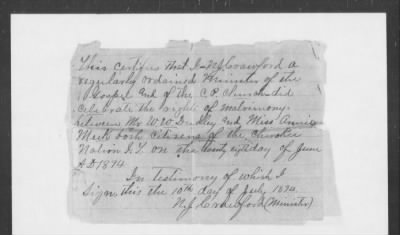 This certifies that I N.J. Crawford a
regularly ordained Minister of the
Gospel and of the C.P. Church did
celebrate the right of matrimony
between Mr W.E. Dudley and Miss Annie
Meek both citizens of the Cherokee
Nation I.T. on the day of June
A D 1894.
In testimony of which I
Sign this the 10th day of July 1894.
N.J. Crawford (Minister)